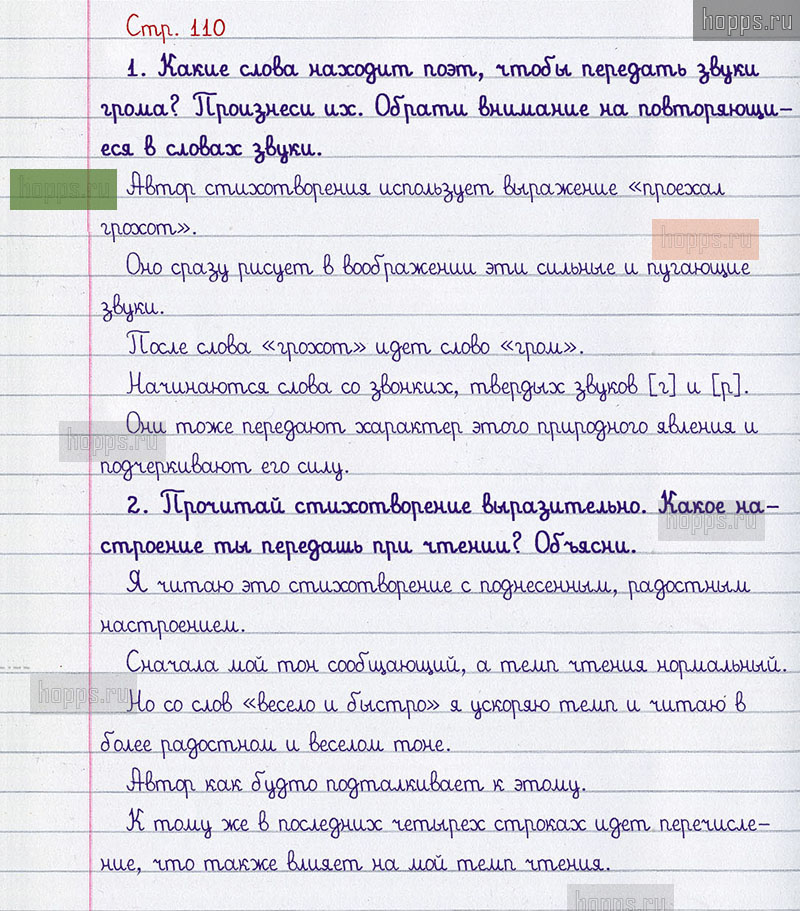 hopps.ru
Стр. 110
1. Какие слова находит поэт, чтобы передать звуки
грома? Произнеси их. Обрати внимание на повторяющи-
еся в словах звуки.
hopps.ru
Автор стихотворения использует выражение «проехал
грохот».
hopps.ru
Оно сразу рисует в воображении эти сильные и пугающие
звуки.
После слова «грохот» идет слово «гром».
Начинаются слова со звонких, твердых звуков [г] и [р].
Они тоже передают характер этого природного явления и
hopps.ru
подчеркивают его силу.
2. Прочитай стихотворение выразительно. Какое на-
hopps.ru
строение ты передашь при чтении? Объясни.
Я читаю это стихотворение с поднесенным, радостным
настроением.
Сначала мой тон сообщающий, а темп чтения нормальный.
hopps.ru
Но со слов «весело и быстро» я ускоряю темп и читаю в
более радостном и веселом тоне.
Автор как будто подталкивает к этому.
К тому же в последних четырех строках идет перечисле-
ние, что также влияет на мой темп чтения.
hopps.ru